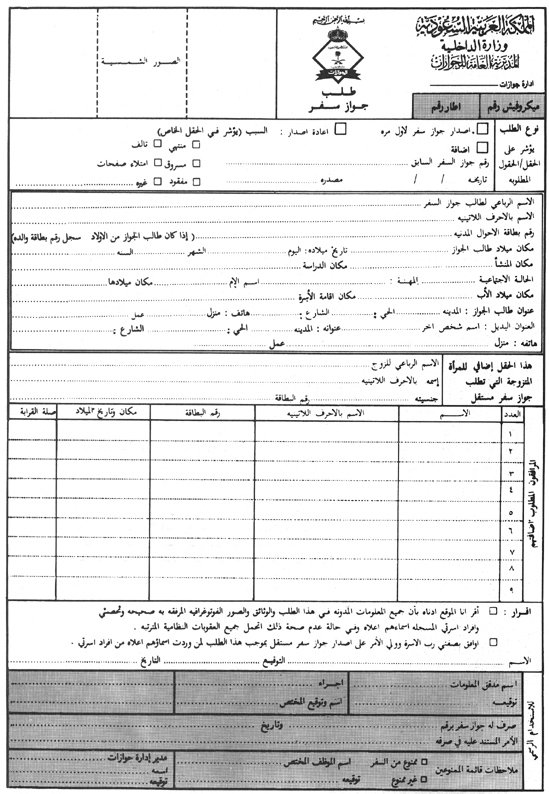 المملكة العربية السعودية
وزارة الداخلية
المديرية العامة للجوازات
ادارة جوازات
بسم الله الرحمن الرحيم
الجوازات
طلب
جواز سفر
الصور الشمسية
ميكروفيش رقم
اطار رقم
نوع الطلب
يؤشر على
الحقل/الحقول
المطلوبه
اصدار جواز سفر لاول مره
اعادة اصدار : السبب (يؤشر في الحقل الخاص)
اضافة
منتهي
تالف
رقم جواز السفر السابق
مسروق
امتلاء صفحات
تاريخه / /
مصدره
مفقود
غيره
الاسم الرباعي لطالب جواز السفر
الاسم بالاحرف اللاتينيه
رقم بطاقة الاحوال المدنيه ( إذا كان طالب الجواز من الاولاد سجل رقم بطاقة والده)
مكان ميلاد طالب الجواز تاريخ ميلاده: اليوم الشهر السنه
مكان المنشأ مكان الدراسة
الحالة الاجتماعية : المهنة : اسم الام مكان ميلادها
مكان ميلاد الأب مكان اقامة الأسرة
عنوان طالب الجواز : المدينه الحي : الشارع : هاتف : منزل عمل
العنوان البديل : اسم شخص اخر عنوانه : المدينه الحي : الشارع :
هاتفه : منزل عمل
هذا الحقل إضافي للمرأة
المتزوجة التي تطلب
جواز سفر مستقل
الاسم الرباعي للزوج
إسمه بالاحرف اللاتينيه
جنسيته رقم البطاقة
المرافقون المطلوب اضافتهم
العدد الاسم الاسم بالاحرف اللاتينيه رقم البطاقة مكان وتاريخ الميلاد صلة القرابة
١
٢
٣
٤
٥
٦
٧
٨
٩
اقرار : أقر انا الموقع ادناه بأن جميع المعلومات المدونه في هذا الطلب والوثائق والصور الفوتوغرافيه المرفقه به صحيحه وتخصني
وافراد اسرتي المسجله اسماءهم اعلاه وفي حالة عدم صحة ذلك اتحمل جميع العقوبات النظامية المترتبه .
اوافق بصفتي رب الاسرة وولي الأمر على اصدار جواز سفر مستقل بموجب هذا الطلب لمن وردت اسماؤهم اعلاه من افراد اسرتي .
الاسم التوقيع التاريخ
للاستخدام الرسمي
اسم مدقق المعلومات
توقيعه
اجراء
اسم وتوقيع المختص
صرف له جواز سفر برقم وتاريخ
الأمر المستند عليه في صرفه
ملاحظات قائمة الممنوعين
ممنوع من السفر
غير ممنوع
اسم الموظف المختص
توقيعه
مدير إدارة جوازات
اسمه
توقيعه